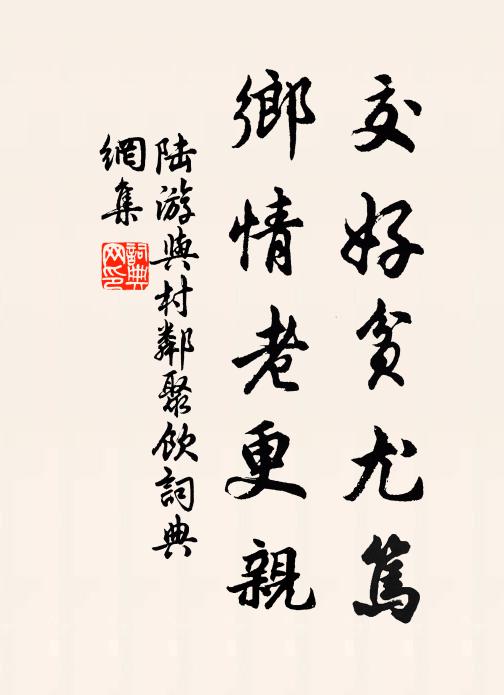 交好貧尤篤
鄉情老更親
陸游與村鄰聚飲詞典
網集
詞典
网印